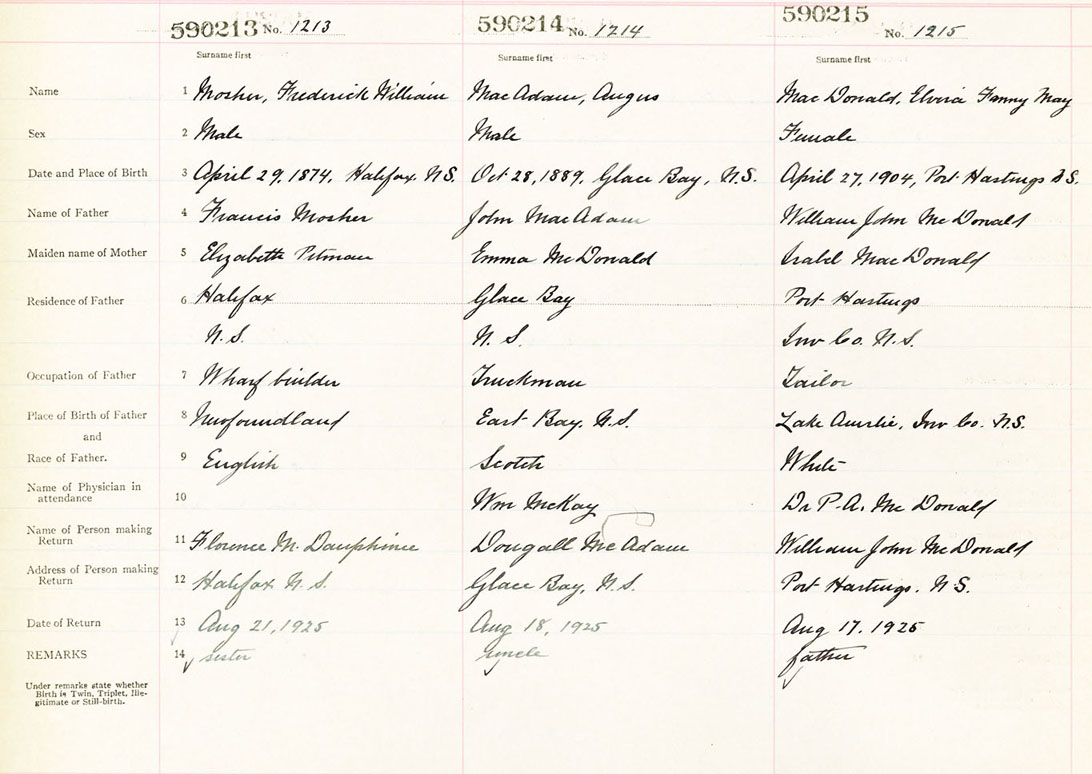 590213 No. 1213 590214 No. 1214 590215 No. 1215
Surname first Surname first Surname first
Name 1 Mosher, Frederick William Mac Adam, Angus Mac Donald, Elvira Fanny May
Sex 2 Male Male Female
Date and Place of Birth 3 April 29, 1874, Halifax, N.S. Oct 28, 1889, Glace Bay, N.S. April 27, 1904, Port Hastings N.S.
Name of Father 4 Francis Mosher John MacAdam William John McDonald
Maiden name of Mother 5 Elizabeth Pitman Emma McDonald Isabel MacDonald
Residence of Father 6 Halifax Glace Bay Port Hastings
N.S. N.S. Inv Co. N.S.
Occupation of Father 7 Wharf builder Truckman Tailor
Place of Birth of Father 8 Newfoundland East Bay, N.S. Lake Ainslie, Inv Co. N.S.
and
Race of Father. 9 English Scotch White
Name of Physician in
attendance 10 Wm McKay Dr P.A. McDonald
Name of Person making
Return 11 Florence M. Dauphinee Dougall McAdam William John McDonald
Address of Person making
Return 12 Halifax N.S. Glace Bay, N.S. Port Hastings. N.S.
Date of Return 13 Aug 21, 1925 Aug 18, 1925 Aug 17. 1925
REMARKS 14 sister uncle father
Under remarks state whether
Birth is Twin, Triplet, Ille-
gitimate or Still-birth.